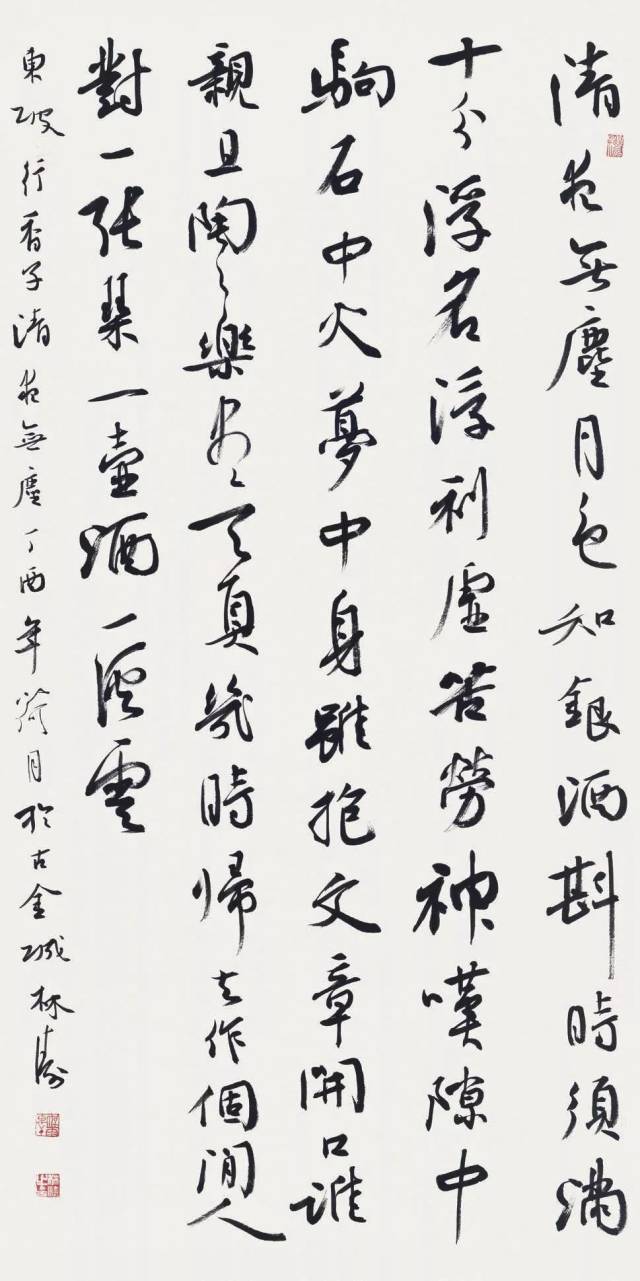 清夜無塵月色如銀酒斟時須滿
十分浮名浮利虛苦勞神嘆隙中
駒石中火夢中身雖抱文章開口誰
親且陶陶樂盡天真幾時歸去作個閒人
對一張琴一壺酒一溪雲
東坡行香子清夜無塵丁酉年荷月於古金城林